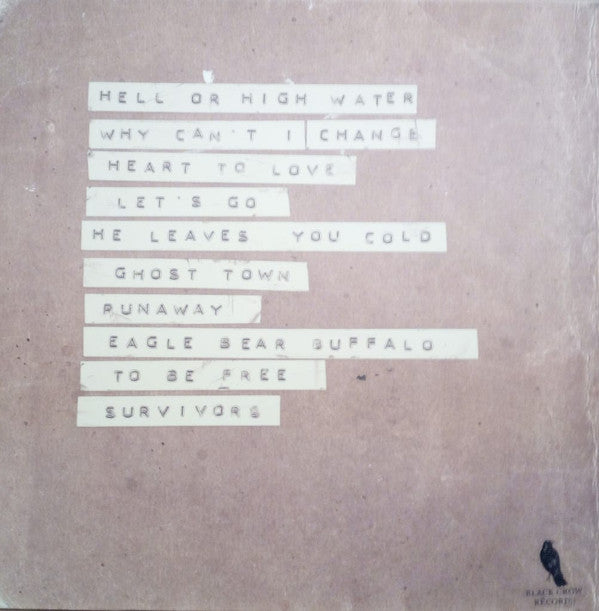 HELL OR HIGH WATER
WHY CAN'T I CHANGE
HEART TO LOVE
LET'S GO
HE LEAVES YOU COLD
GHOST TOWN
RUNAWAY
EAGLE BEAR BUFFALO
TO BE FREE
SURVIVORS
BLACK CROW
RECORDS